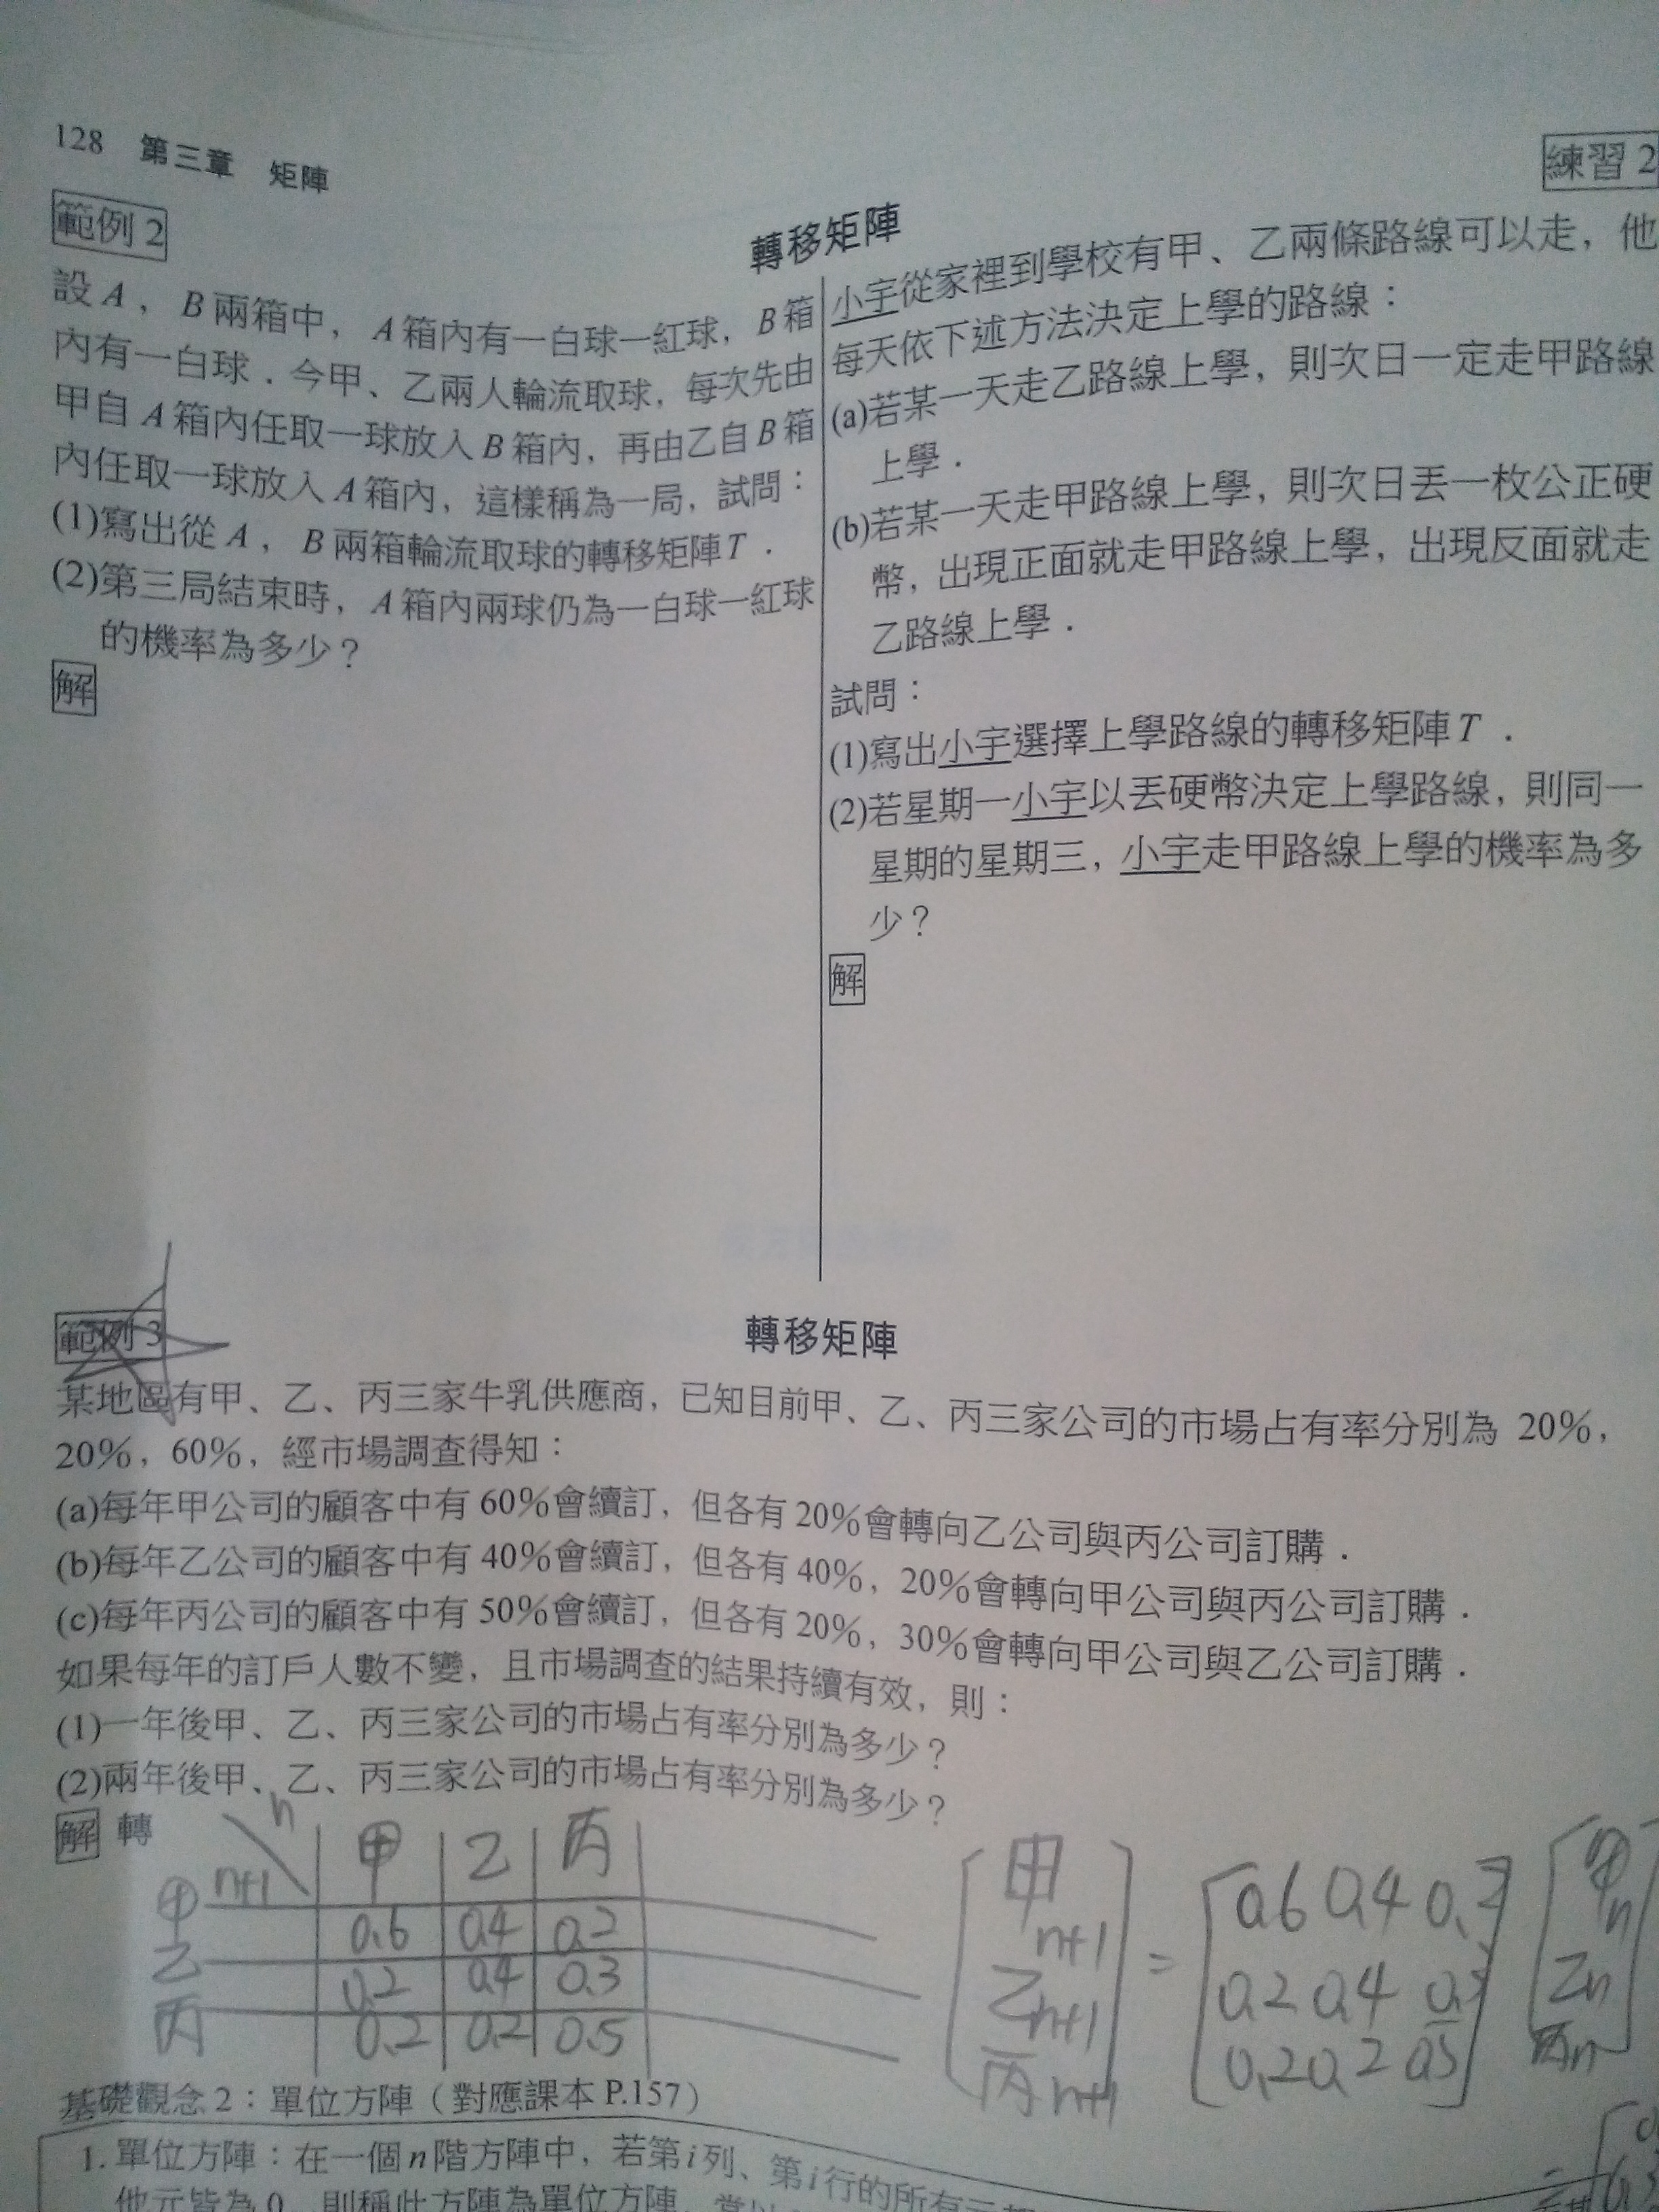 128 第三章 矩陣
轉移矩陣
範例 2
設 A，B 兩箱中，A 箱內有一白球一紅球，B 箱
內有一白球．今甲、乙兩人輪流取球，每次先由
甲自 A 箱內任取一球放入 B 箱內，再由乙自 B 箱
內任取一球放入 A 箱內，這樣稱為一局，試問：
(1)寫出從 A，B 兩箱輪流取球的轉移矩陣 T．
(2)第三局結束時，A 箱內兩球仍為一白球一紅球
的機率為多少？
解
練習 2
小宇從家裡到學校有甲、乙兩條路線可以走，他
每天依下述方法決定上學的路線：
(a)若某一天走乙路線上學，則次日一定走甲路線
上學．
(b)若某一天走甲路線上學，則次日丟一枚公正硬
幣，出現正面就走甲路線上學，出現反面就走
乙路線上學．
試問：
(1)寫出小宇選擇上學路線的轉移矩陣 T．
(2)若星期一小宇以丟硬幣決定上學路線，則同一
星期的星期三，小宇走甲路線上學的機率為多
少？
解
範例 3
轉移矩陣
某地區有甲、乙、丙三家牛乳供應商，已知目前甲、乙、丙三家公司的市場占有率分別為 20%，
20%，60%，經市場調查得知：
(a)每年甲公司的顧客中有 60%會續訂，但各有 20%會轉向乙公司與丙公司訂購．
(b)每年乙公司的顧客中有 40%會續訂，但各有 40%，20%會轉向甲公司與丙公司訂購．
(c)每年丙公司的顧客中有 50%會續訂，但各有 20%，30%會轉向甲公司與乙公司訂購．
如果每年的訂戶人數不變，且市場調查的結果持續有效，則：
(1)一年後甲、乙、丙三家公司的市場占有率分別為多少？
(2)兩年後甲、乙、丙三家公司的市場占有率分別為多少？
解 轉
n 甲 乙 丙
n+1
甲 0.6 0.4 0.2
乙 0.2 0.4 0.3
丙 0.2 0.2 0.5
甲n+1 0.6 0.4 0.2 甲n
乙n+1 = 0.2 0.4 0.3 乙n
丙n+1 0.2 0.2 0.5 丙n
基礎觀念 2：單位方陣（對應課本 P.157）
1. 單位方陣：在一個 n 階方陣中，若第 i 列、第 i 行的所有元都
他元皆為 0，則稱此方陣為單位方陣